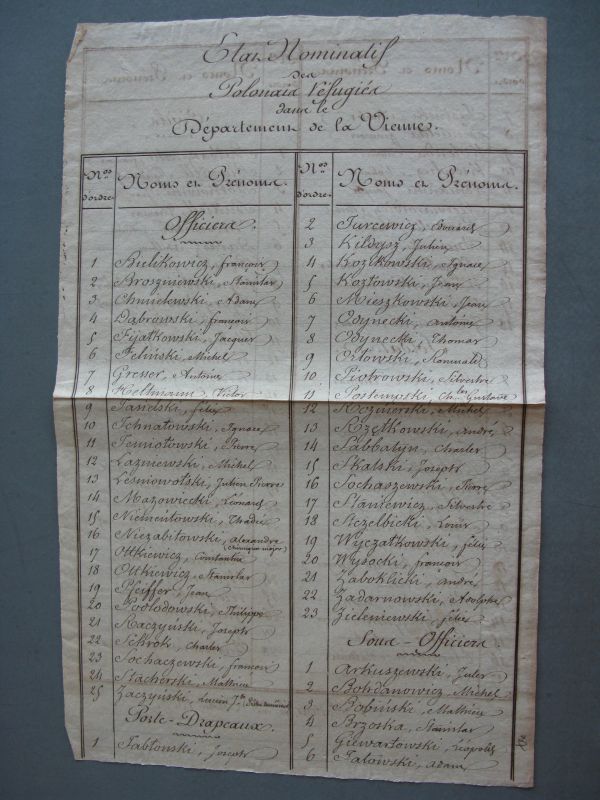 Etat Nominatif
des
Polonais réfugiés
dans le
Département de la Vienne.
Nos d'ordre
Noms et Prénoms.
Officiers.
1 Bielikowicz, françois
2 Broszniowski, Stanislas
3 Chmielewski, Adam
4 Dąbrowski, françois
5 Fijałkowski, Jacques
6 Feliński, Michel
7 Gresser, Antoine
8 Heltmann, Victor
9 Janelski, félix
10 Ichnatowski, Ignace
11 Jeniołowski, Pierre
12 Lazniewski, Michel
13 Julien Pierre
14 Mazowiecki, Léonard
15 Niementowski, Thadée
16 Niezabitowski, alexandre
(chirurgien major)
17 Ottkiewicz, Constantin
18 Ottkiewicz, Stanislas
19 Pfeiffer, Jean
20 Philippe
21 Raczyński, Joseph
22 Sikroki, Charles
23 Sochaczewski, françois
24 Stacherski, Mathieu
25 Zaczyński, Lucien
Porte-Drapeaux.
1 Jabłonski, Joseph
Nos d'ordre
Noms et Prénoms.
2 Jurcewicz, Edouard
3 Kildysz, Julien
4 Kozikowski, Ignace
5 Kozłowski, Jean
6 Mieszkowski, Jean
7 Odynecki, antoine
8 Odynecki, Thomas
9 Orłowski, Romuald
10 Piotrowski, Silvestre
11 Postempski, Chles Gustave
12 Rozmierski, Michel
13 Rzętkowski, andré
14 Sabbatyn, Charles
15 Skalski, Joseph
16 Sochaszewski, Pierre
17 Stankewicz, Silvestre
18 Louis
19 Wyczałkowski, félix
20 Wysocki, françois
21 Zaboklicki, andré
22 Zadarnowski, Adolphe
23 Zieleniewski, félix
Sous-Officiers
1 Arkuszewski, Jules
2 Bohdanowicz, Michel
3 Bobiński, Mathieu
4 Brzoska, Stanislas
5 Giewartowski, Léopold
6 Jałowski, adam